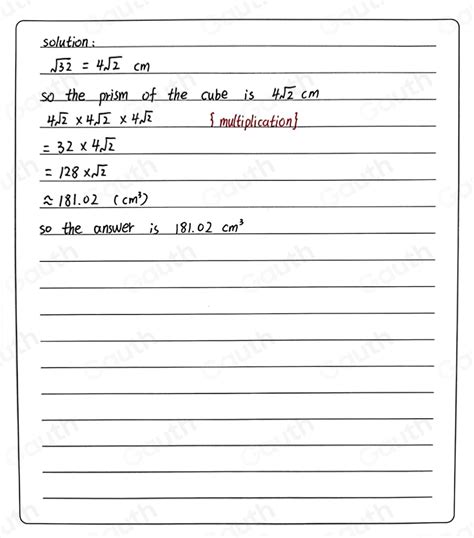 solution:
√32 = 4√2 cm
so the prism of the cube is 4√2 cm
4√2 × 4√2 × 4√2 { multiplication}
= 32 × 4√2
= 128 × √2
≈ 181.02 (cm³)
so the answer is 181.02 cm³